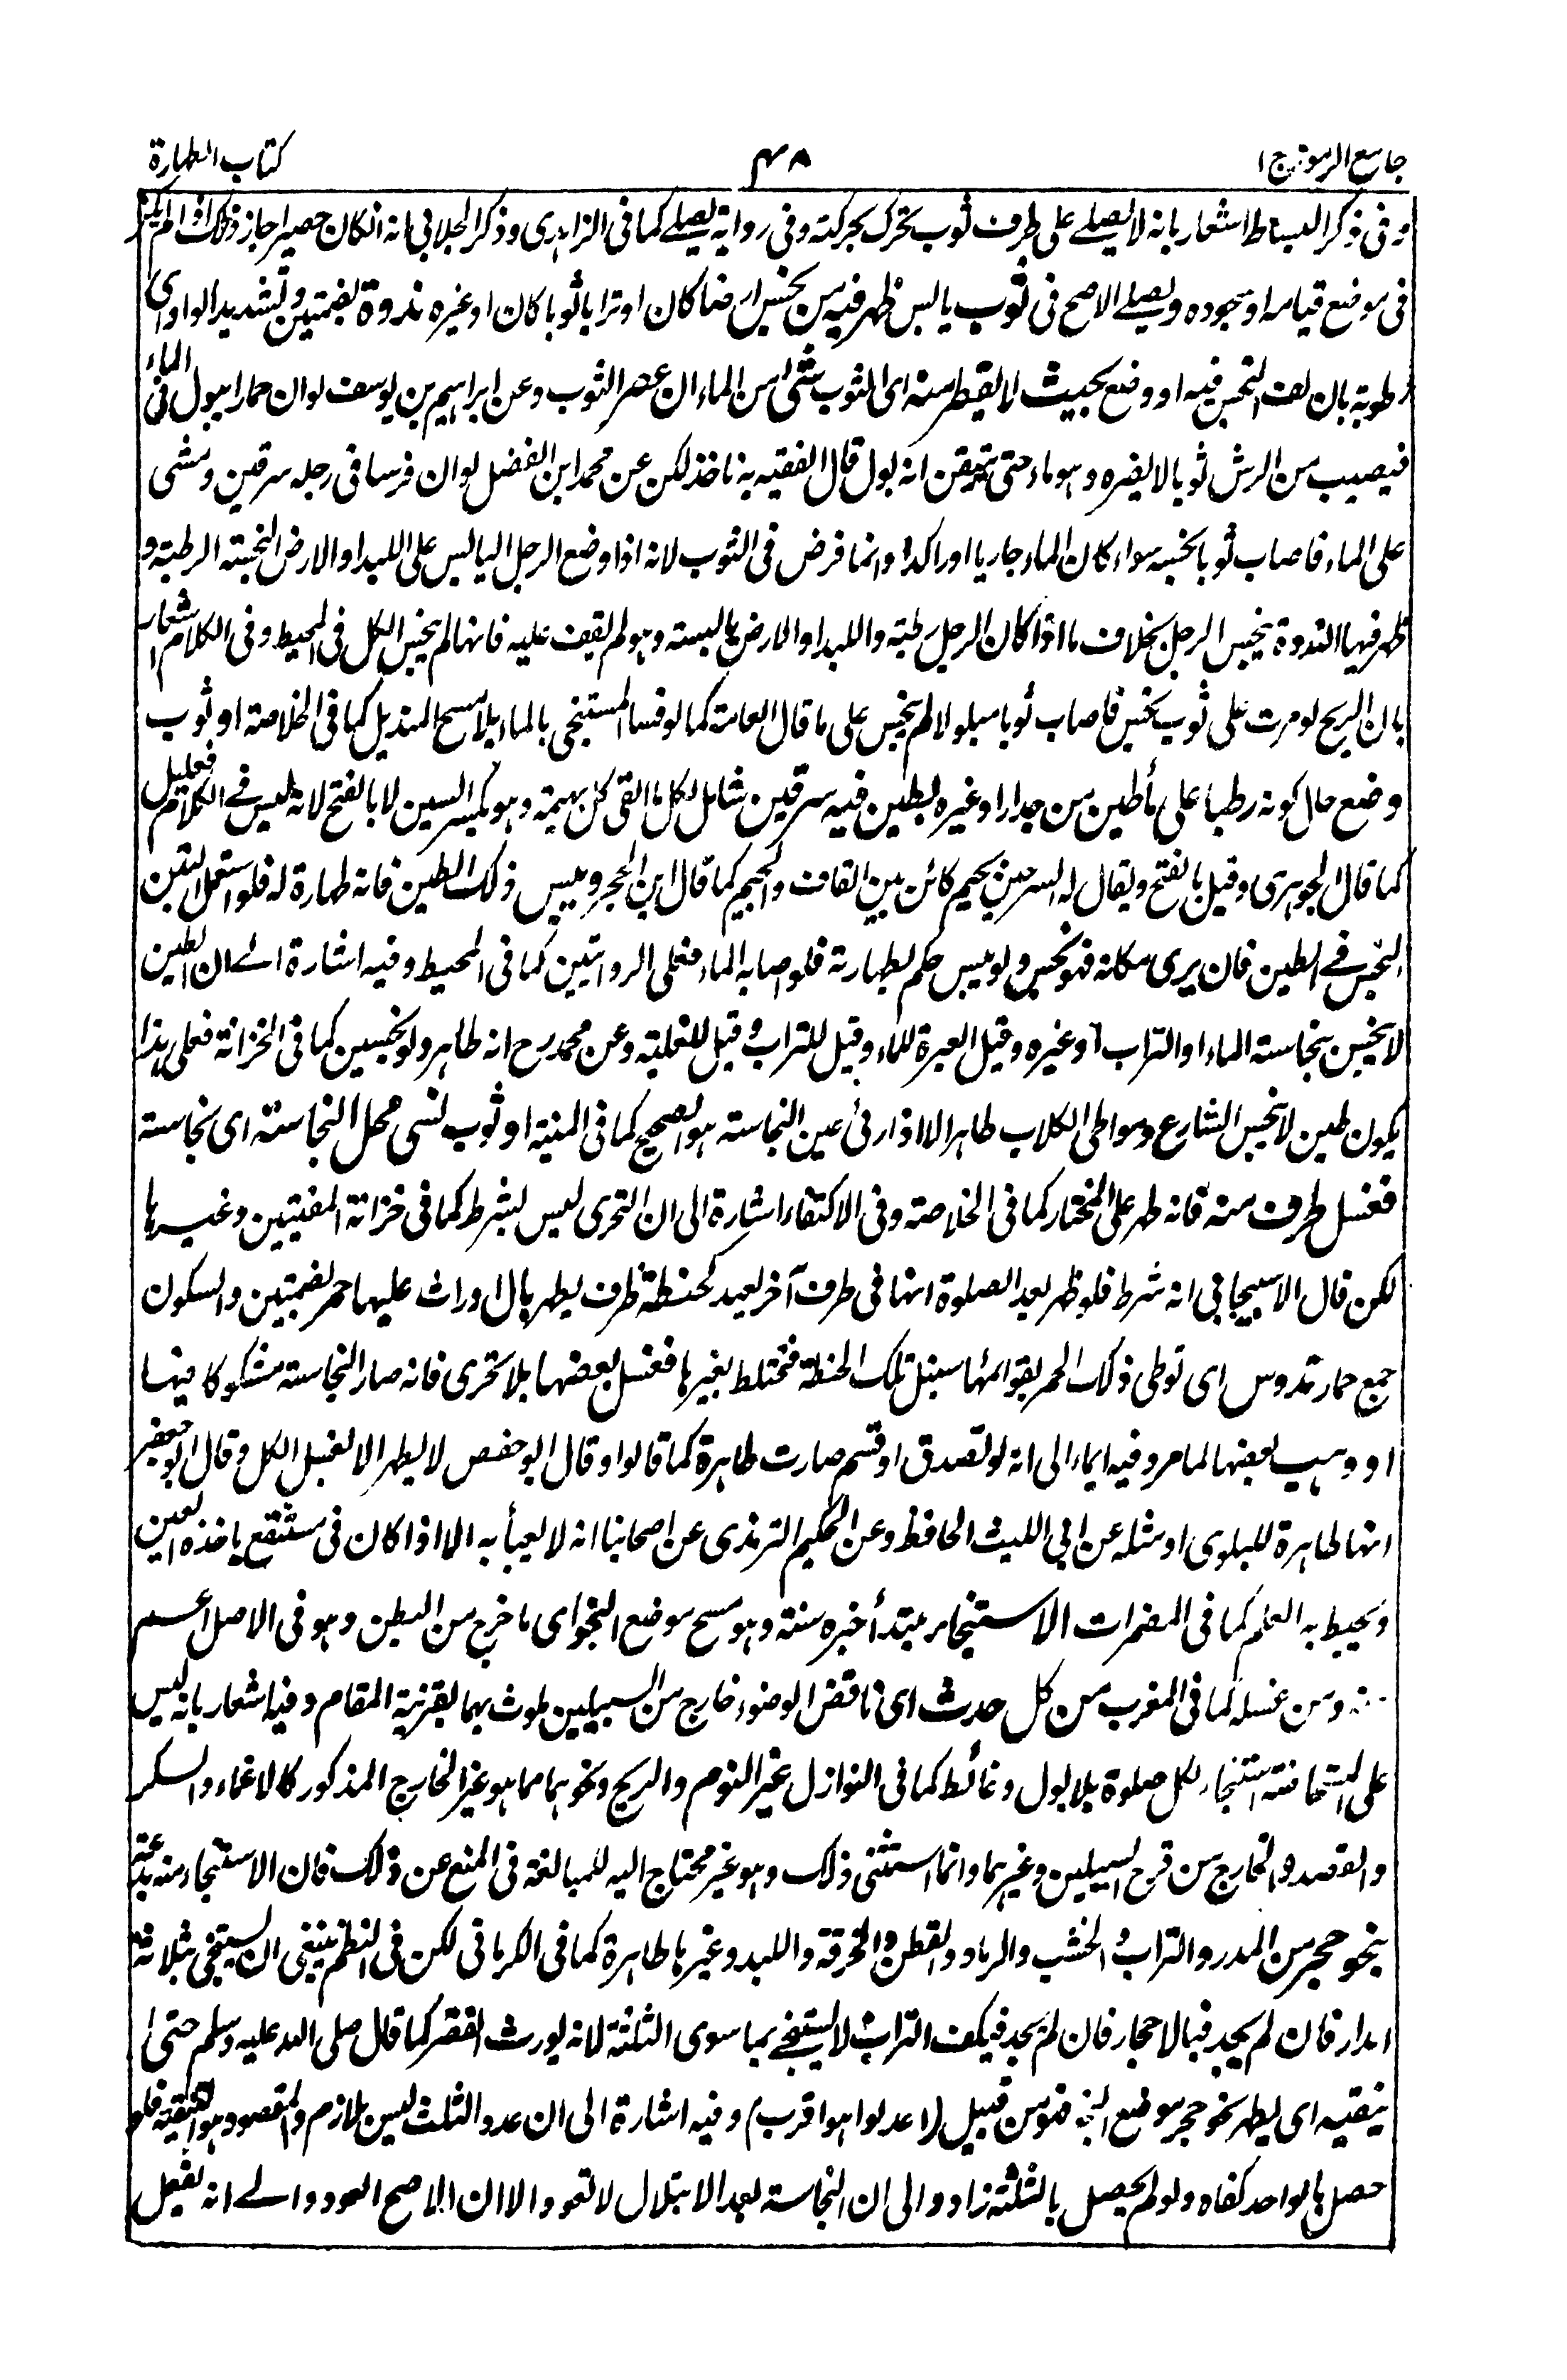 جامع الرموز ج ١
٤٨
كتاب الطهارة
وفى ذكر البساط اشعار بانه لا يصلے على طرف ثوب تحرك بحركته وفى رواية يصلے كما فى الزاهدى وذكر الجلابى انه انكان حصيرا جاز ذلك اذا لم يكن
فى موضع قيامه او سجوده ويصلے الاصح فى ثوب يابس ظهر فيه من نجس ارضا كان او ترابا ثوبا كان او غيره ندوة بضمتين وتشديد الواو اى
رطوبة بان لف النجس فيه او وضع بحيث لا يقطر منه اى الثوب شئ من الماء ان عصر الثوب وعن ابراهيم بن يوسف لو ان حمارا يبول فى الماء
فيصيب من الرش ثوبا لا يضره وهو ماء حتى يتيقن انه بول قال الفقيه به ناخذ لكن عن محمد ابن الفضل لو ان فرسا فى رجله سرقين ومشى
على الماء فاصاب ثوبا نجسه سواء كان الماء جاريا او راكدا وانما فرض فى الثوب لانه اذا وضع الرجل اليابس على اللبد او الارض النجسة الرطبة و
ظهر فيها الندوة ينجس الرجل بخلاف ما اذا كان الرجل رطبة واللبد او الارض يابسته وهو لم يقف عليه فانها لم ينجس الكل فى المحيط وفى الكلام اشعار
بان الريح لو مرت على ثوب نجس فاصاب ثوبا مبلولا لم ينجس على ما قال العامة كما لو فسا المستنجى بالماء بلا مسح المنديل كما فى الخلاصة او ثوب
وضع حال كونه رطبا على ما طين من جدار او غيره بطين فيه سرقين شامل لكل ما القى كل بهيمة وهو بكسر السين لا بالفتح لانه ليس فے الكلام فعليل
كما قال الجوهرى وقيل بالفتح ويقال له السرجين بجيم كائن بين القاف والجيم كما قال ابن الحجر ويبس ذلك الطين فانه طهارة له فلو استعمل التبن
النجس فے الطين فان يرى مكانه فهو نجس ولو يبس حكم بطهارته فلو اصابه الماء فعلى الروايتين كما فى المحيط وفيه اشارة الے ان الطين
لا ينجس بنجاسة الماء او التراب او غيره وقيل العبرة للماء وقيل للتراب وقيل للغلبة وعن محمد رح انه طاهر ولو نجسين كما فى الخزانة فعلى هذا
يكون طين لا نجس الشارع ومواطى الكلاب طاهرا الا اذا رئى عين النجاسة هو الصحيح كما فى المنية او ثوب نسى محل النجاسة اى نجاسة
فغسل طرف منه فانه طهر على المختار كما فى الخلاصة وفى الاكتفاء اشارة الى ان التحرى ليس بشرط كما فى خزانة المفتيين وغيرها
لكن قال الاسبيجابى انه شرط فلو ظهر بعد الصلوة انها فى طرف آخر يعيد كحنطة ظرف يطهر بال او راث عليها حمر بضمتين والسكون
جمع حمار تدوس اى توطى ذلك الحمر بقوائمها سنبل تلك الحنطة فتختلط بغيرها فغسل بعضها بلا تحرى فانه صار النجاسة مشكوكا فيها
او وهب بعضها لما مر وفيه ايماء الى انه لو تصدق او قسم صارت طاهرة كما قالوا وقال ابو حفص لا يطهر الا بغسل الكل وقال ابو جعفر
انها طاهرة للبلوى او مثله عن ابى الليث الحافظ وعن الحكيم الترمذى عن اصحابنا انه لا يعبأ به الا اذا كان فى مستنقع ياخذه العين
ويحيط به العلم كما فى المضمرات الاستنجاء مبتدأ خبره سنة وهو مسح موضع النجو اى ما خرج من البطن وهو فى الاصل اعم
منه ومن غسله كما فى المغرب من كل حدث اى ناقض الوضوء خارج من السبيلين ملوث بهما بقرينة المقام وفيه اشعار بانه ليس
على المستحاضة استنجاء لكل صلوة بلا بول وغائط كما فى النوازل غير النوم والريح ونحوهما مما هو غير الخارج المذكور كالاغماء والسكر
والفصد والخارج من قرح السبيلين وغيرهما وانما استثنى ذلك وهو غير محتاج اليه للمبالغة فى المنع عن ذلك فان الاستنجاء منه بدعة
بنحو حجر من المدر والتراب والخشب والرماد والقطن والخرقة واللبد وغيرها طاهرة كما فى الكرمانى لكن فى النظم ينبغى ان يستنجى بثلاثة
امدار فان لم يجد فبالاحجار فان لم يجد فبكف التراب لا يستنجے بما سوى الثلثة لانه يورث الفقر كما قال صلى الله عليه وسلم حتى
ينقيه اى يطهر نحو حجر موضع النجو فهو من قبيل (اعدلوا هو اقرب) وفيه اشارة الى ان عدد الثلث ليس بلازم والمقصود هو التنقية فلو
حصل بالواحد كفاه ولو لم يحصل بالثلثة زاد والى ان النجاسة بعد الابتلال لا تعود الا ان الاصح العود والے انه يفعل